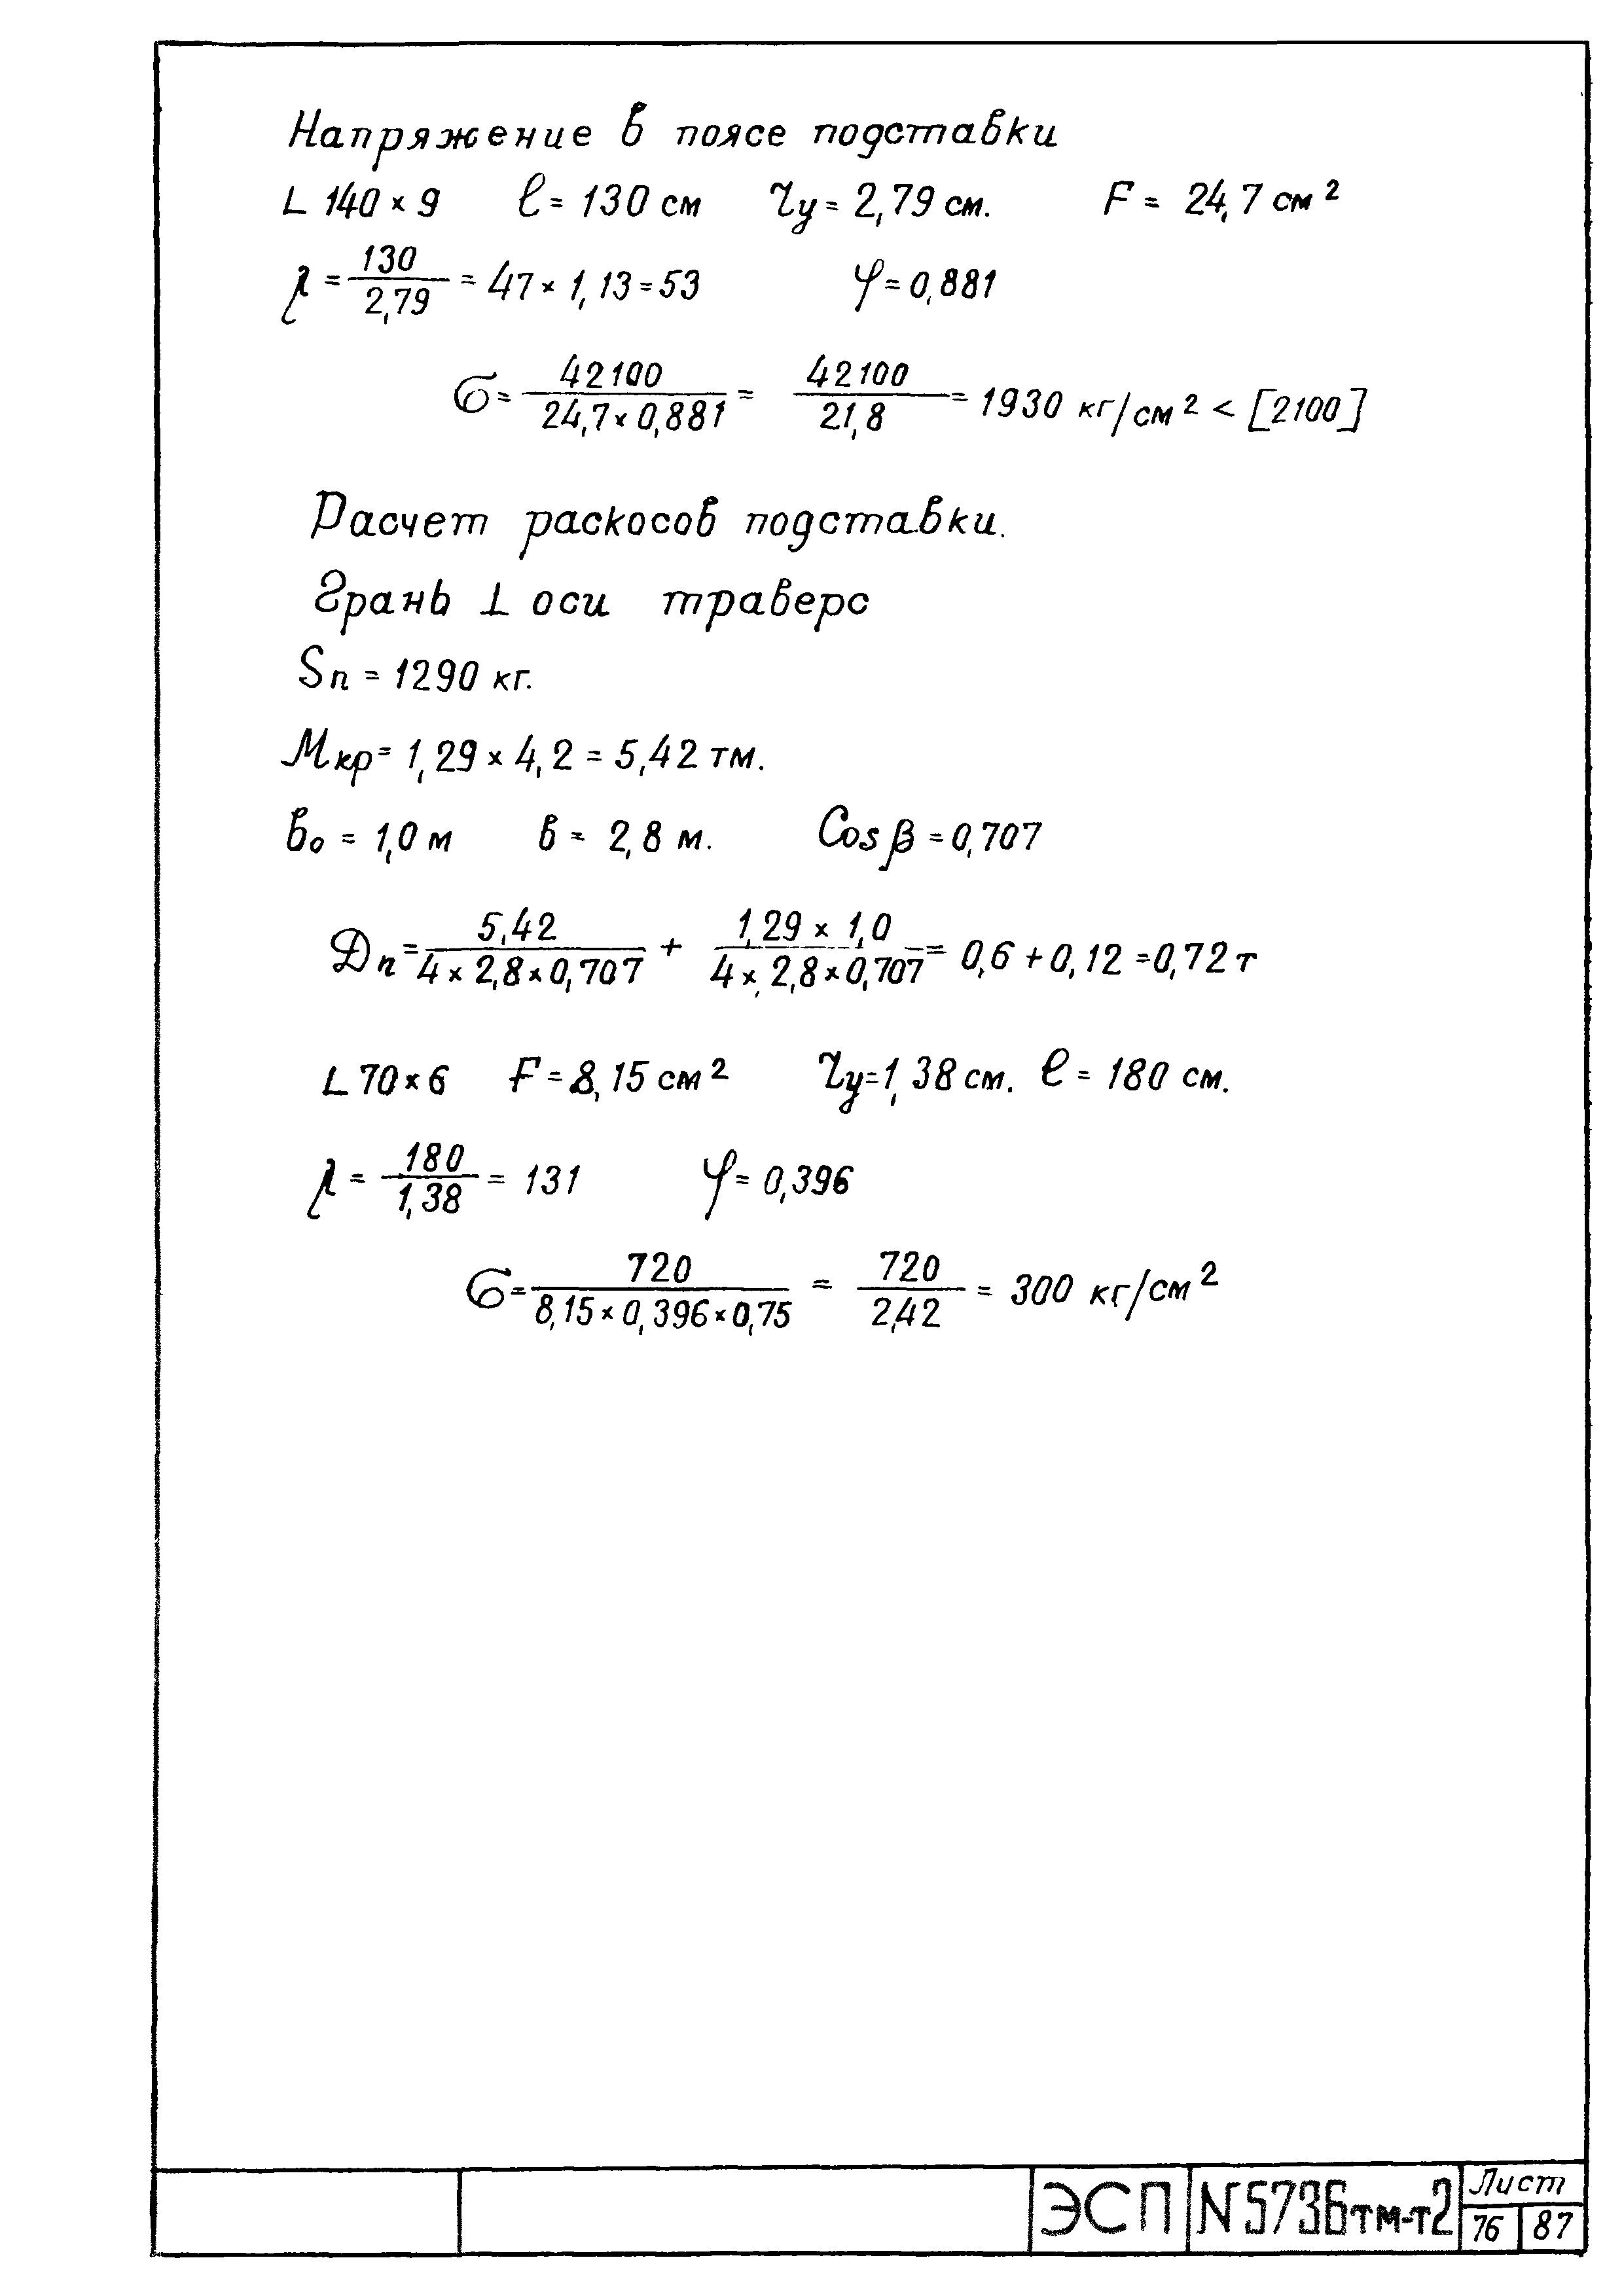 Напряжение в поясе подставки
L 140 × 9 ℓ = 130 см ry = 2,79 см. F = 24,7 см²
λ = 130/2,79 = 47 × 1,13 = 53 φ = 0,881
σ = 42100/24,7 × 0,881 = 42100/21,8 = 1930 кг/см² < [2100]
Расчет раскосов подставки.
Грань ⊥ оси траверс
Sп = 1290 кг.
Мкр = 1,29 × 4,2 = 5,42 тм.
в₀ = 1,0 м в = 2,8 м. Cos β = 0,707
Дп = 5,42/4 × 2,8 × 0,707 + 1,29 × 1,0/4 × 2,8 × 0,707 = 0,6 + 0,12 = 0,72 т
L 70 × 6 F = 8,15 см² ry = 1,38 см. ℓ = 180 см.
λ = 180/1,38 = 131 φ = 0,396
σ = 720/8,15 × 0,396 × 0,75 = 720/2,42 = 300 кг/см²
ЭСП N 5736тм-т2 Лист
76 87